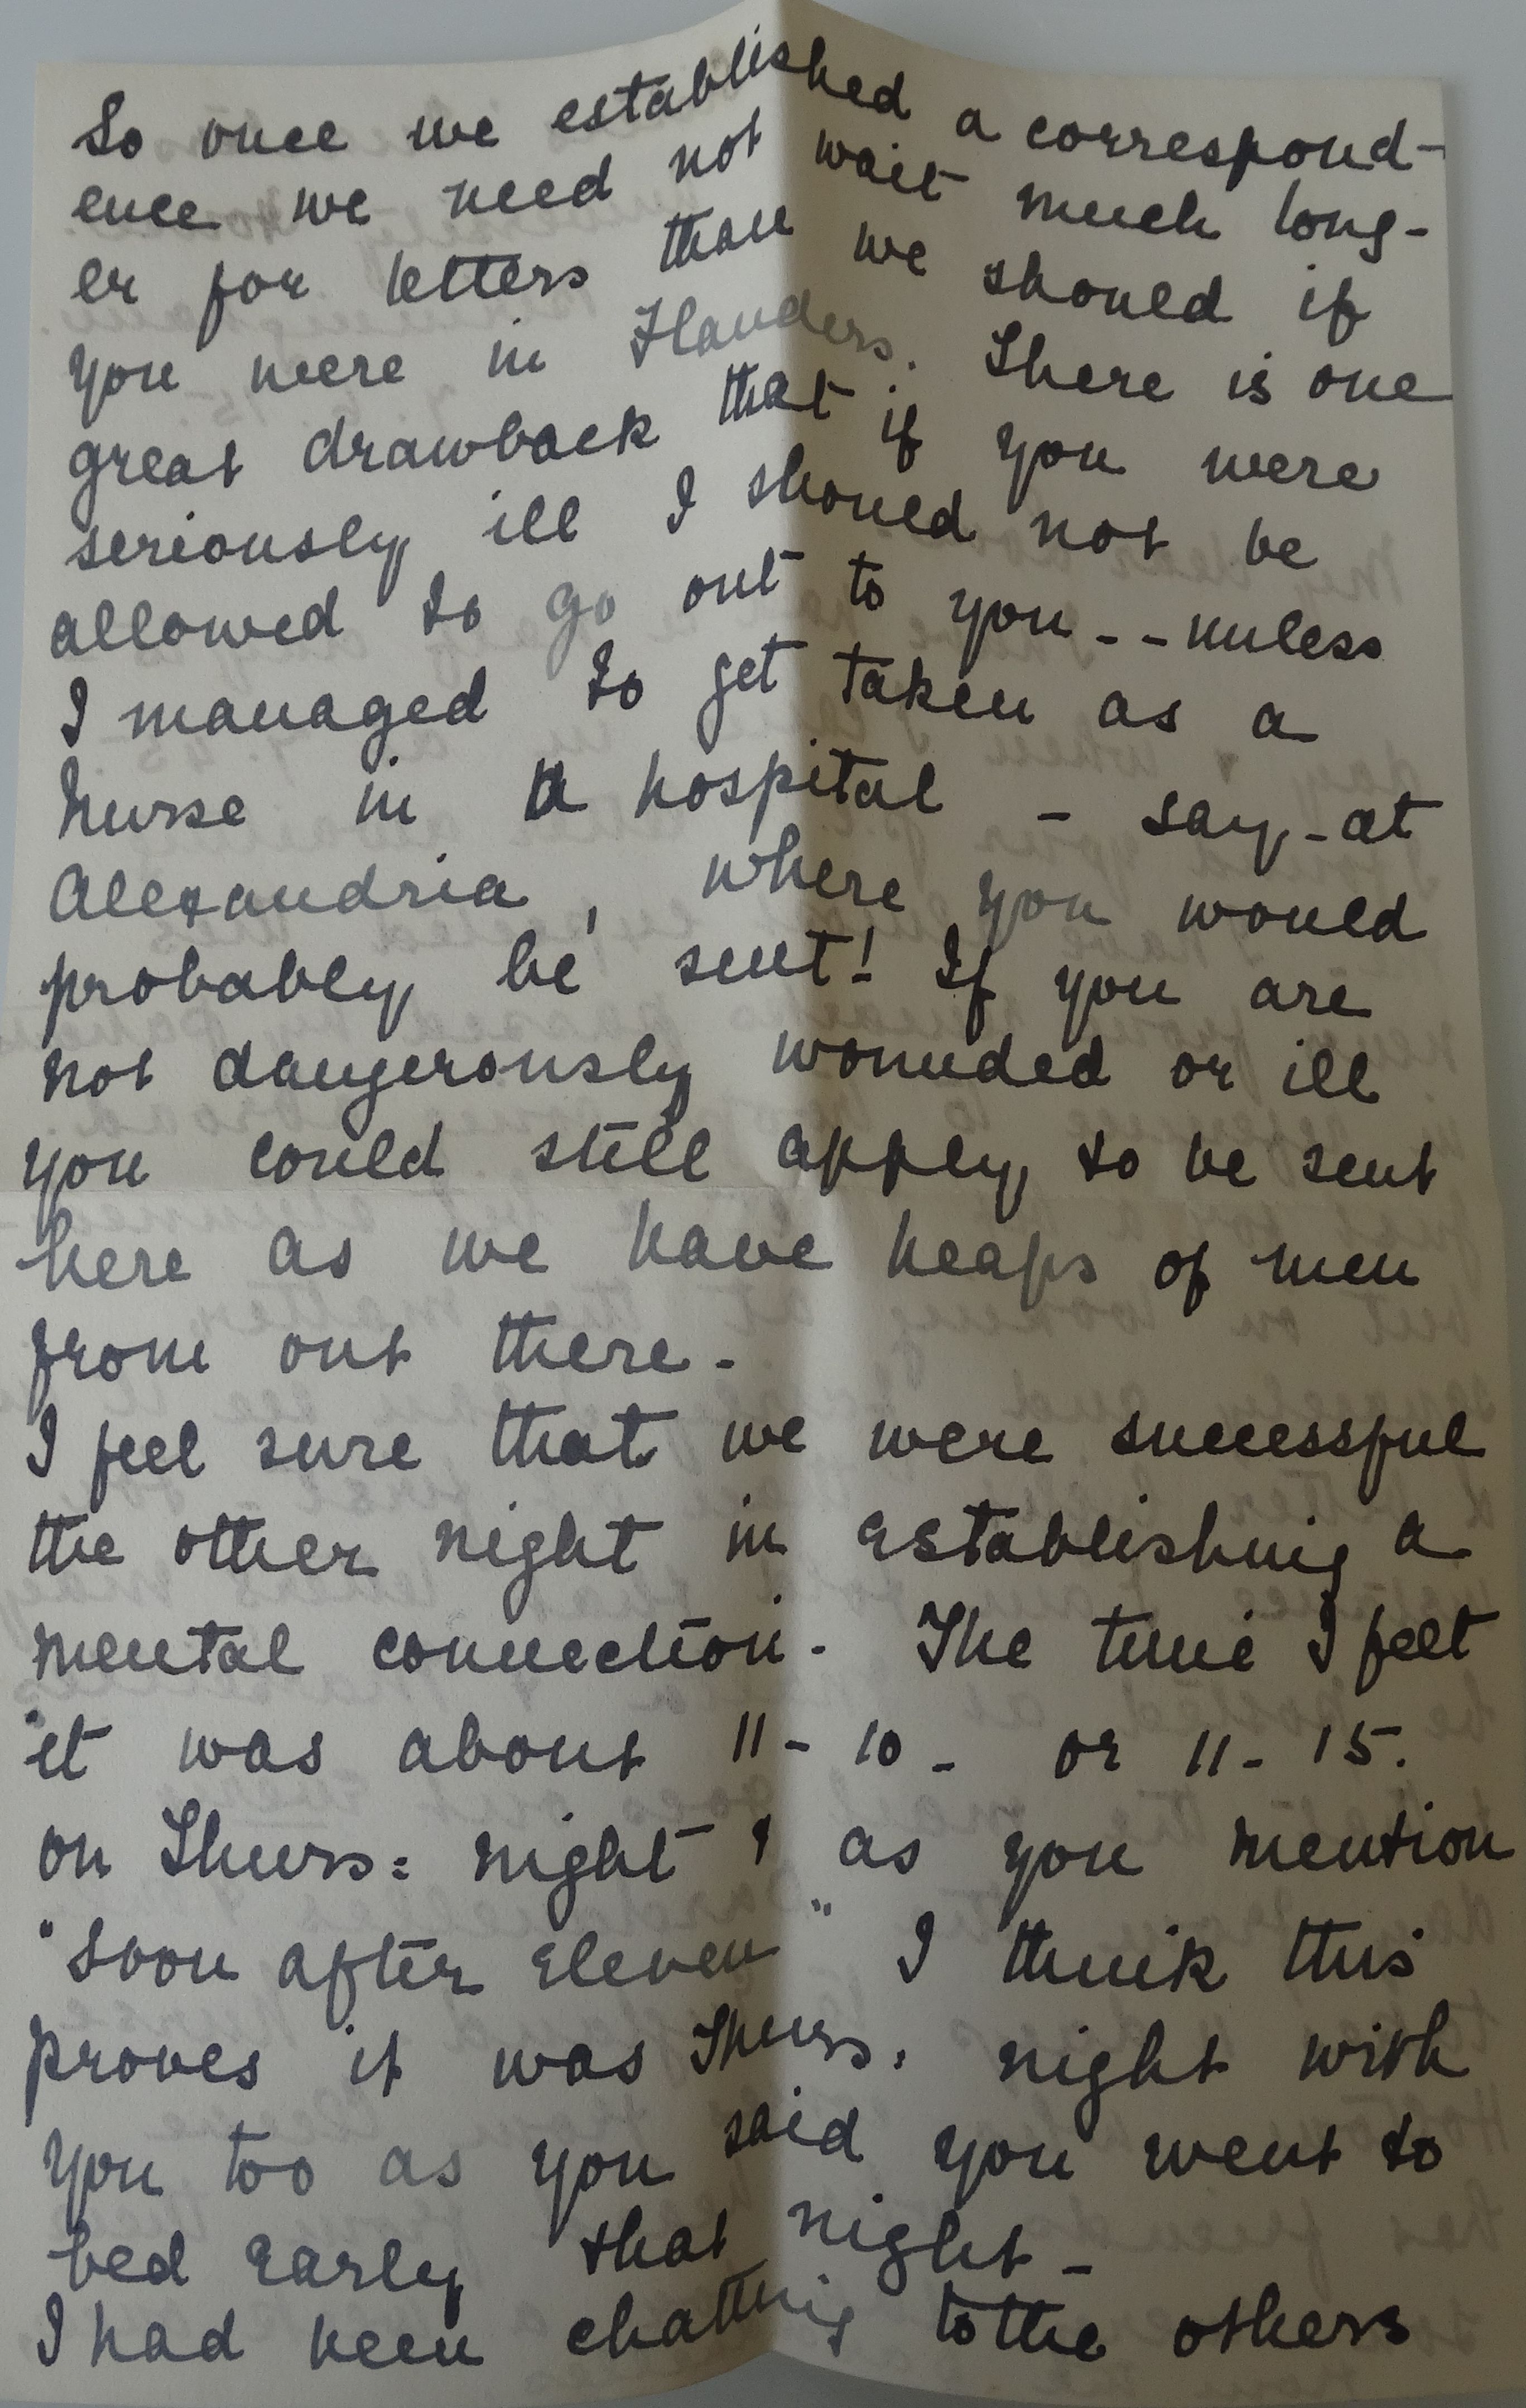 So once we established a correspond-
ence we need not wait much long-
er for letters than we should if
you were in Flanders. There is one
great drawback that if you were
seriously ill I should not be
allowed to go out to you -- unless
I managed to get taken as a
nurse in a hospital - say - at
Alexandria, where you would
probably be sent! If you are
not dangerously wounded or ill
you could still apply to be sent
here as we have heaps of men
from out there -
I feel sure that we were successful
the other night in establishing a
mental connection. The time I felt
it was about 11-10 - or 11-15.
on Thurs: night & as you mention
"soon after eleven" I think this
proves it was Thurs: night with
you too as you said you went to
bed early that night -
I had been chatting to the others